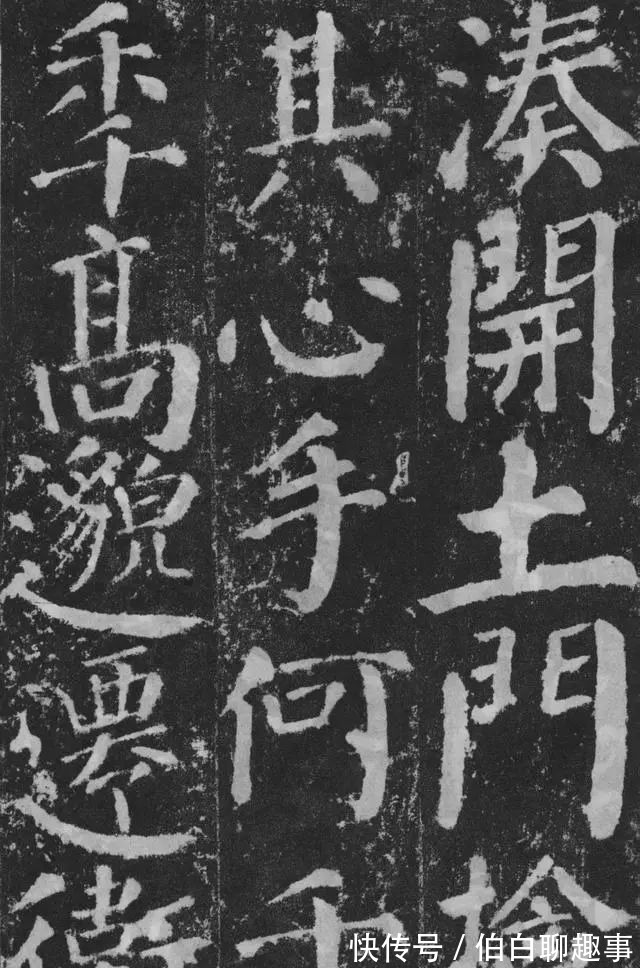 湊開土門擒
其心手何千
秊高邈遷衛
快传号/伯白聊趣事